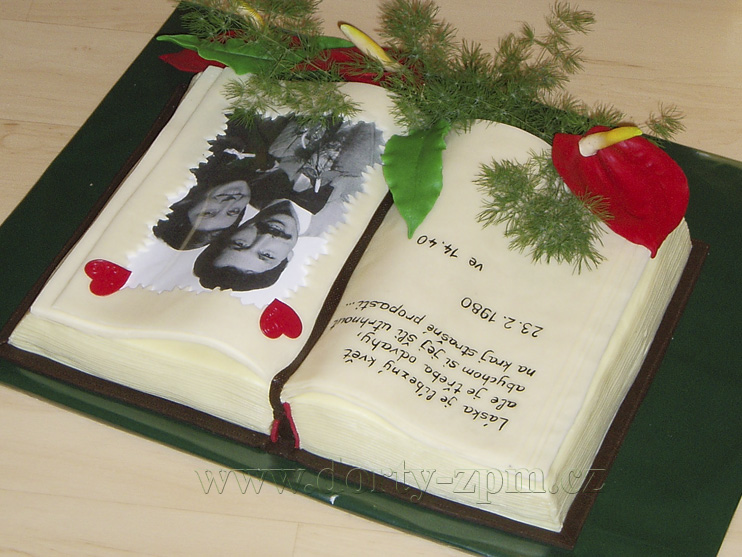 Láska je líbezný květ
ale je třeba odvahy,
abychom si jej šli utrhnout
na kraj strašné propasti...
23.2.1980
ve 14.40
www.dorty-zpm.cz